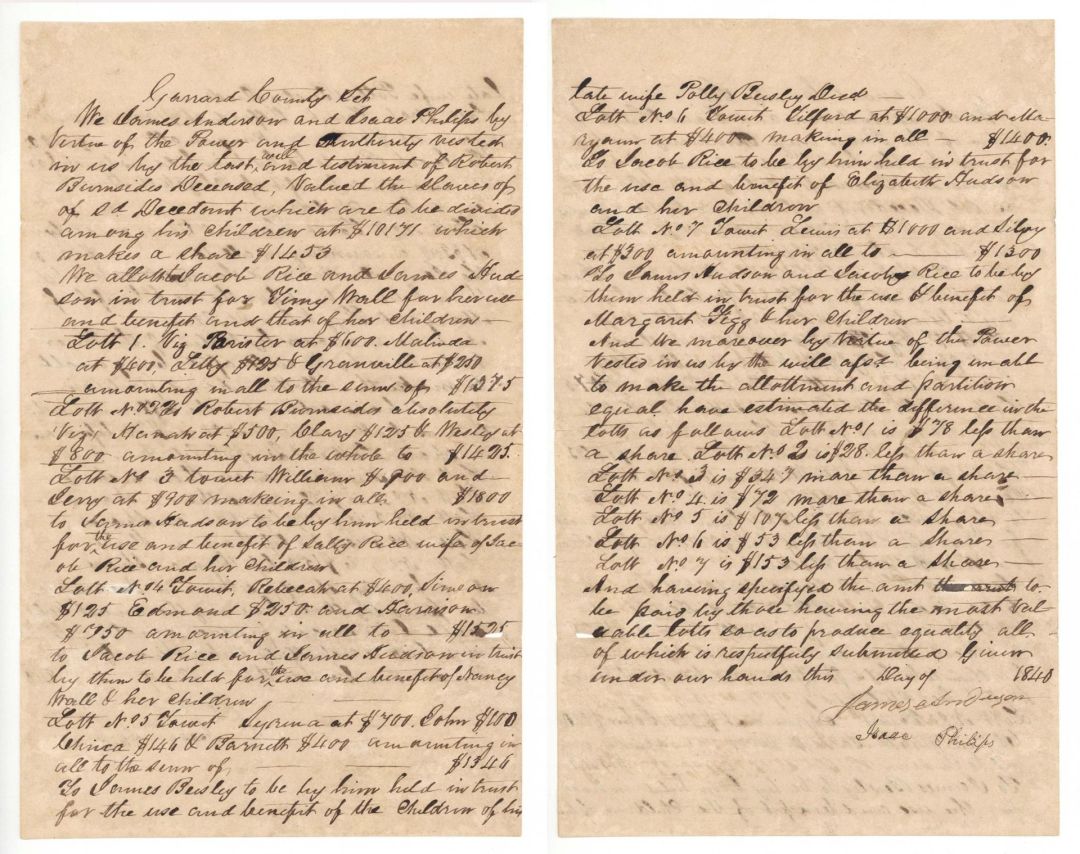 Garrard County Sct
We James Anderson and Isaac Philips by
Virtue of the Power and Authority vested
in us by the last will and testiment of Robert
Burnsides Deceased, Valued the slaves of
of sd Decedant which are to be divided
among his children at $10171 which
makes a share $1453
We allott Jacob Rice and James Hud
son in trust for Jinny Wall for her use
and benefit and that of her Children
Lott 1. Viz Parister at $600. Malinda
at $400, Letty $125 & Granville at $250
amounting in all to the sum of $1375
Lott No 2 To Robert Burnsides absolutely
Viz, Hannah at $500, Clary $125 & Wesley at
$800 amounting in the whole to $1425.
Lott No 3 towit William $900 and
Jerry at $900 makeing in all $1800
to James Hudson to be by him held in trust
for the use and benefit of Sally Rice wife of Jac
ob Rice and her Children
Lott No 4 Towit, Rebecah at $400, Simeon
$125 Edmond $250 and Harrison
$750 amounting in all to $1525
to Jacob Rice and James Hudson in trust
by them to be held for the use and benefit of Nancy
Wall & her Children
Lott No 5 Towit Syrena at $700. John $100
Chinca $146 & Barnett $400 amounting in
all to the sum of $1346
To James Beisley to be by him held in trust
for the use and benefit of the Children of his
late wife Polly Beisley Decd
Lott No 6 Towit Tilford at $1000 and Ma-
ryann at $400 making in all $1400.
To Jacob Rice to be by him held in trust for
the use and benefit of Elizabeth Hudson
and her Children
Lott No 7 Towit Lewis at $1000 and Silvy
at $300 amounting in all to $1300
To James Hudson and Jacob Rice to be by
them held in trust for the use & benefit of
Margaret Figg & her Children
And we moreover by Virtue of the Power
Vested in us by the will afsd being unabl
to make the allottment and partition
equal have estimated the difference in the
lotts as follows Lott No 1 is $78 less than
a share Lott No 2 is $28. less than a share
Lott No 3 is $347 more than a share
Lott No 4 is $72 more than a share
Lott No 5 is $107 less than a share
Lott No 6 is $53 less than a share
Lott No 7 is $153 less than a share
And having specifyed the amt to
be paid by those having the most val
uable lotts so as to produce equality all
of which is respectfully submitted Given
under our hands this Day of 1840
James Anderson
Isaac Philips